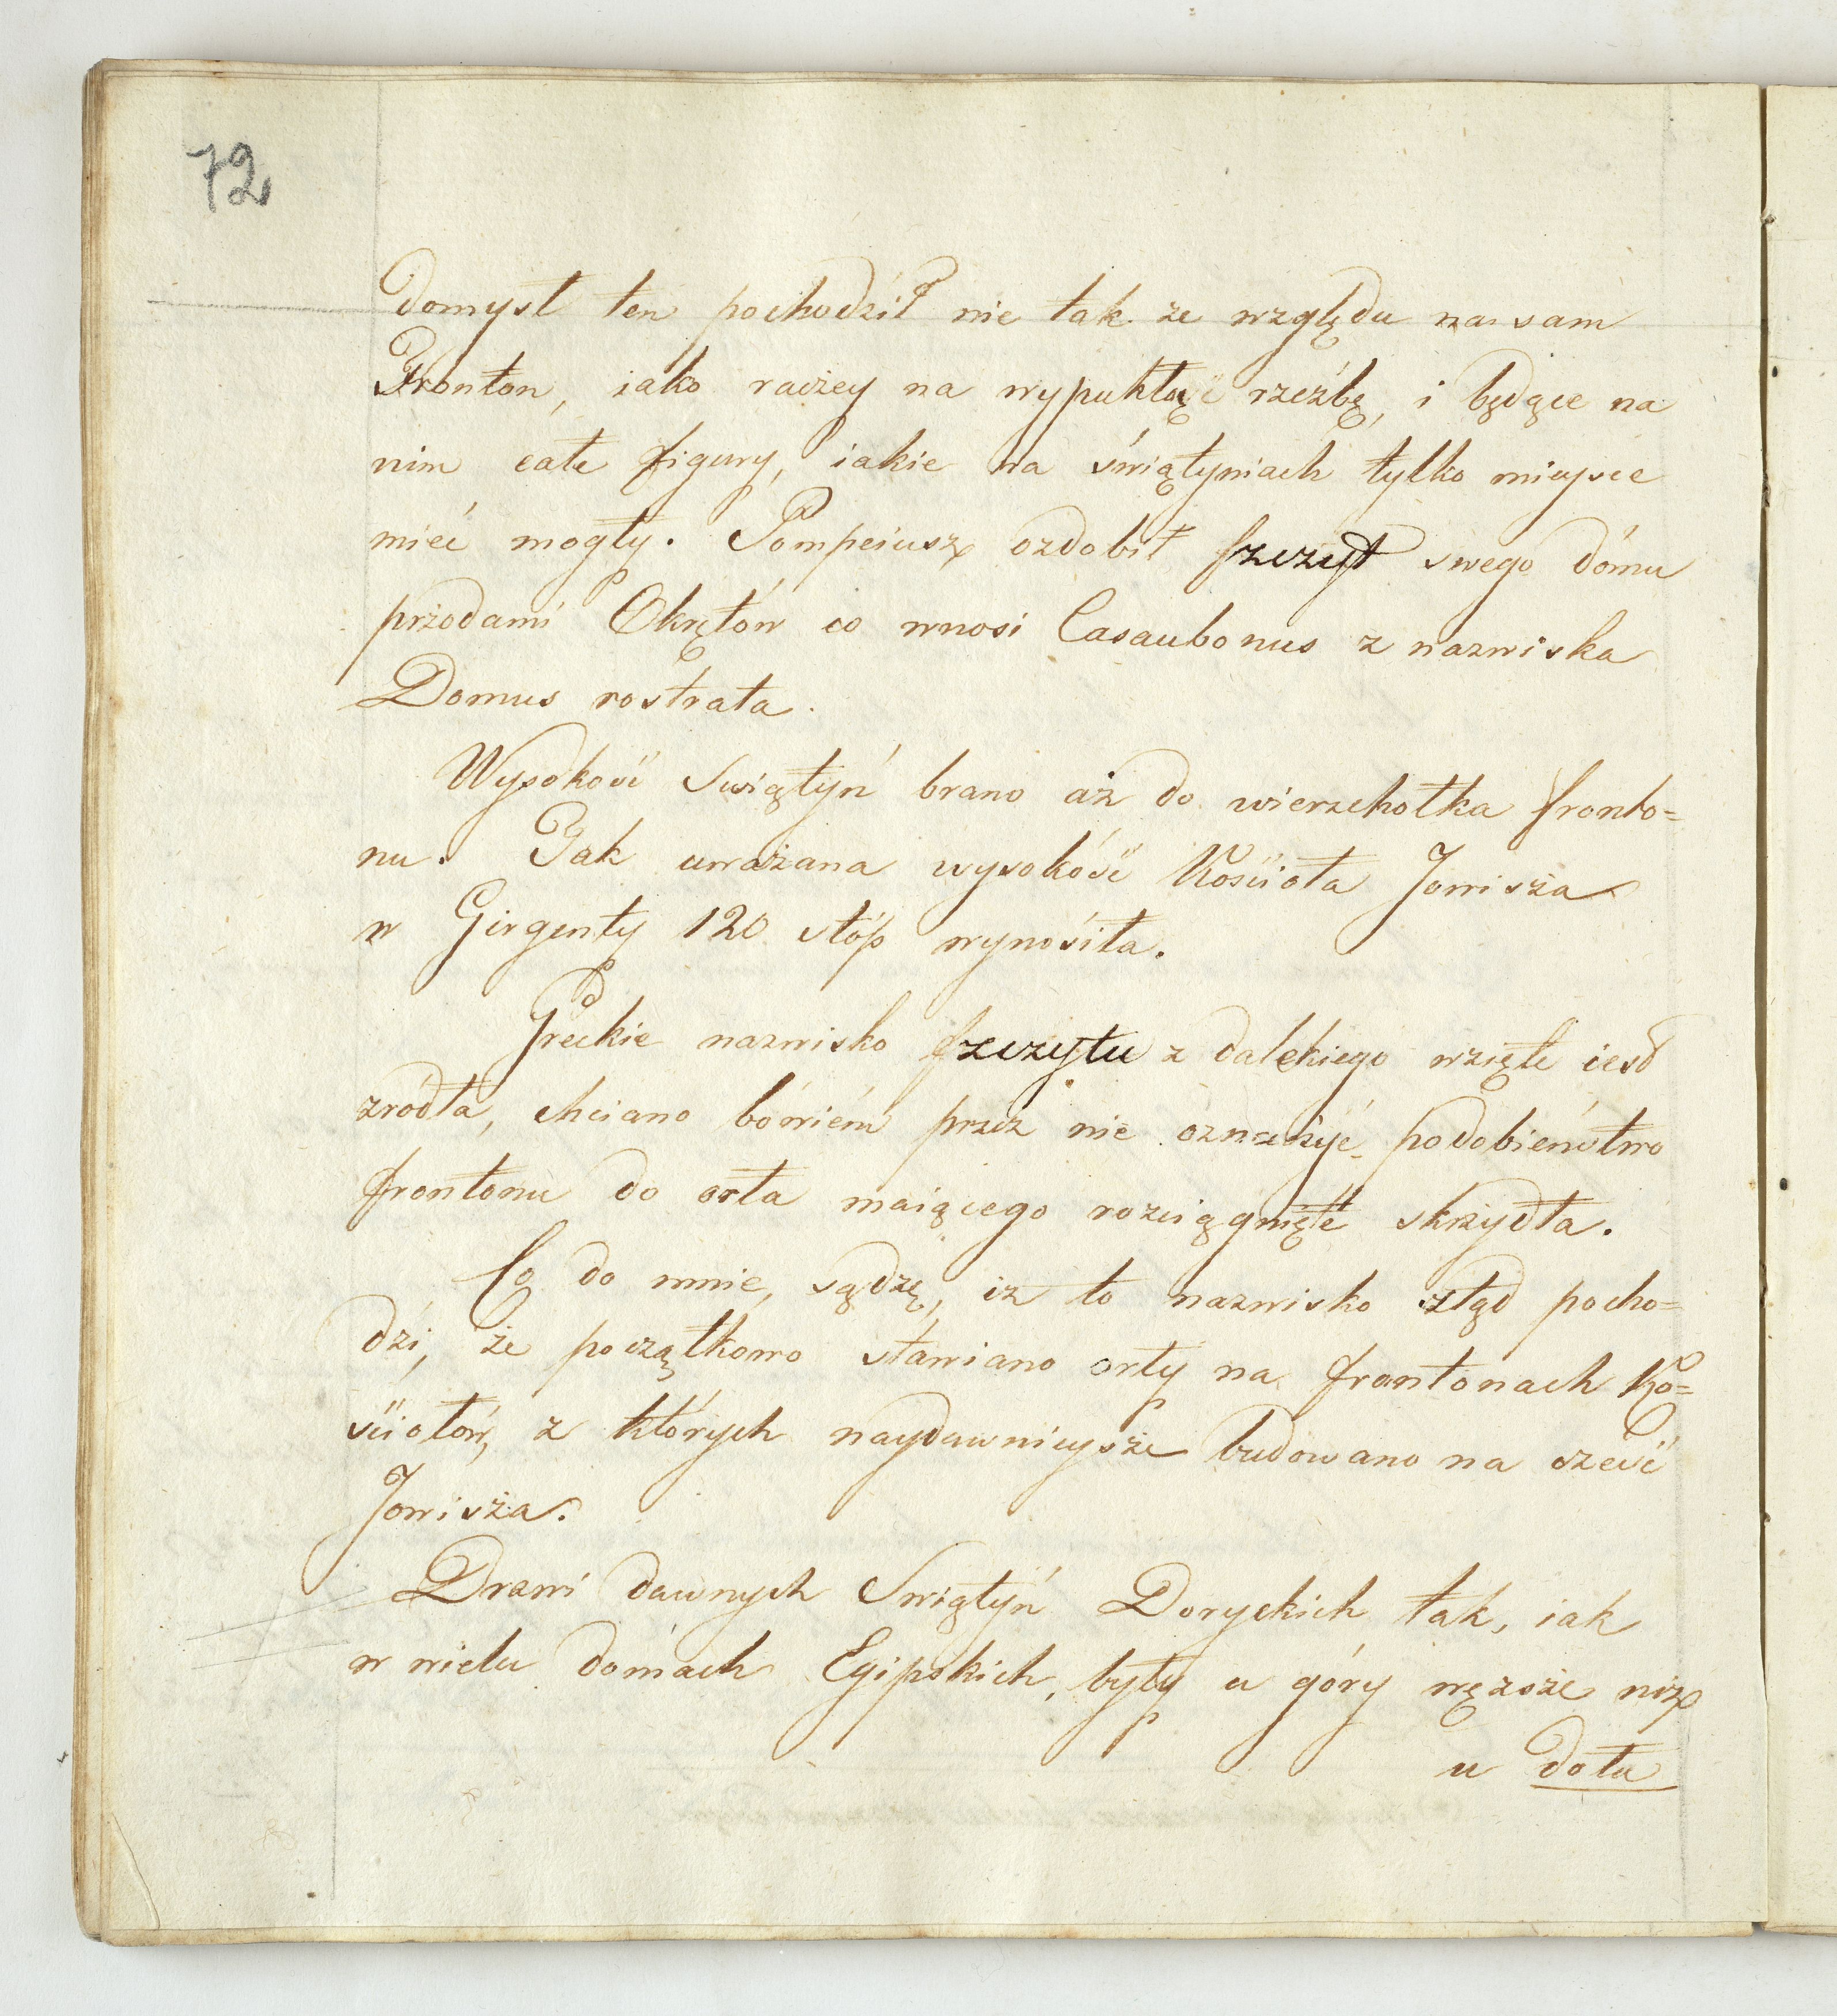 72
Domysł ten pochodził nie tak ze względu na sam
Fronton, iako racżey na wypukłąć rzeźbę, i będące na
nim całe figury, iakie na świątyniach tylko mieysce
mieć mogły. Pompeiusz ozdobił szczyt swego dómu
przodami Okrętów co wnosi Casaubonus z nazwiska
Domus rostrata.
Wysokość Swiątyń brano aż do wierzchołka fronto=
nu. Jak uważana wysokóść Kościoła Jowisża
w Girgenty 120 stóp wynosiła.
Greckie nazwisko szczytu z dalekiego wzięte iest
zródła, chciano bówiém przéz nie oznaczyć podobieństwo
frontonu do orła maiącego rozciągnięte skrzydła.
Co do mnie, sądzę, iż to nazwisko ztąd pocho=
dzi, że początkowo stawiano orły na frontonach Ko=
ściołów, z których naydawnieysże budowano na cześć
Jowisża.
Drzwi dawnych Swiątyń Doryckich tak, iak
w wielu domach Egipskich, były u góry węzsże niż
u dołu